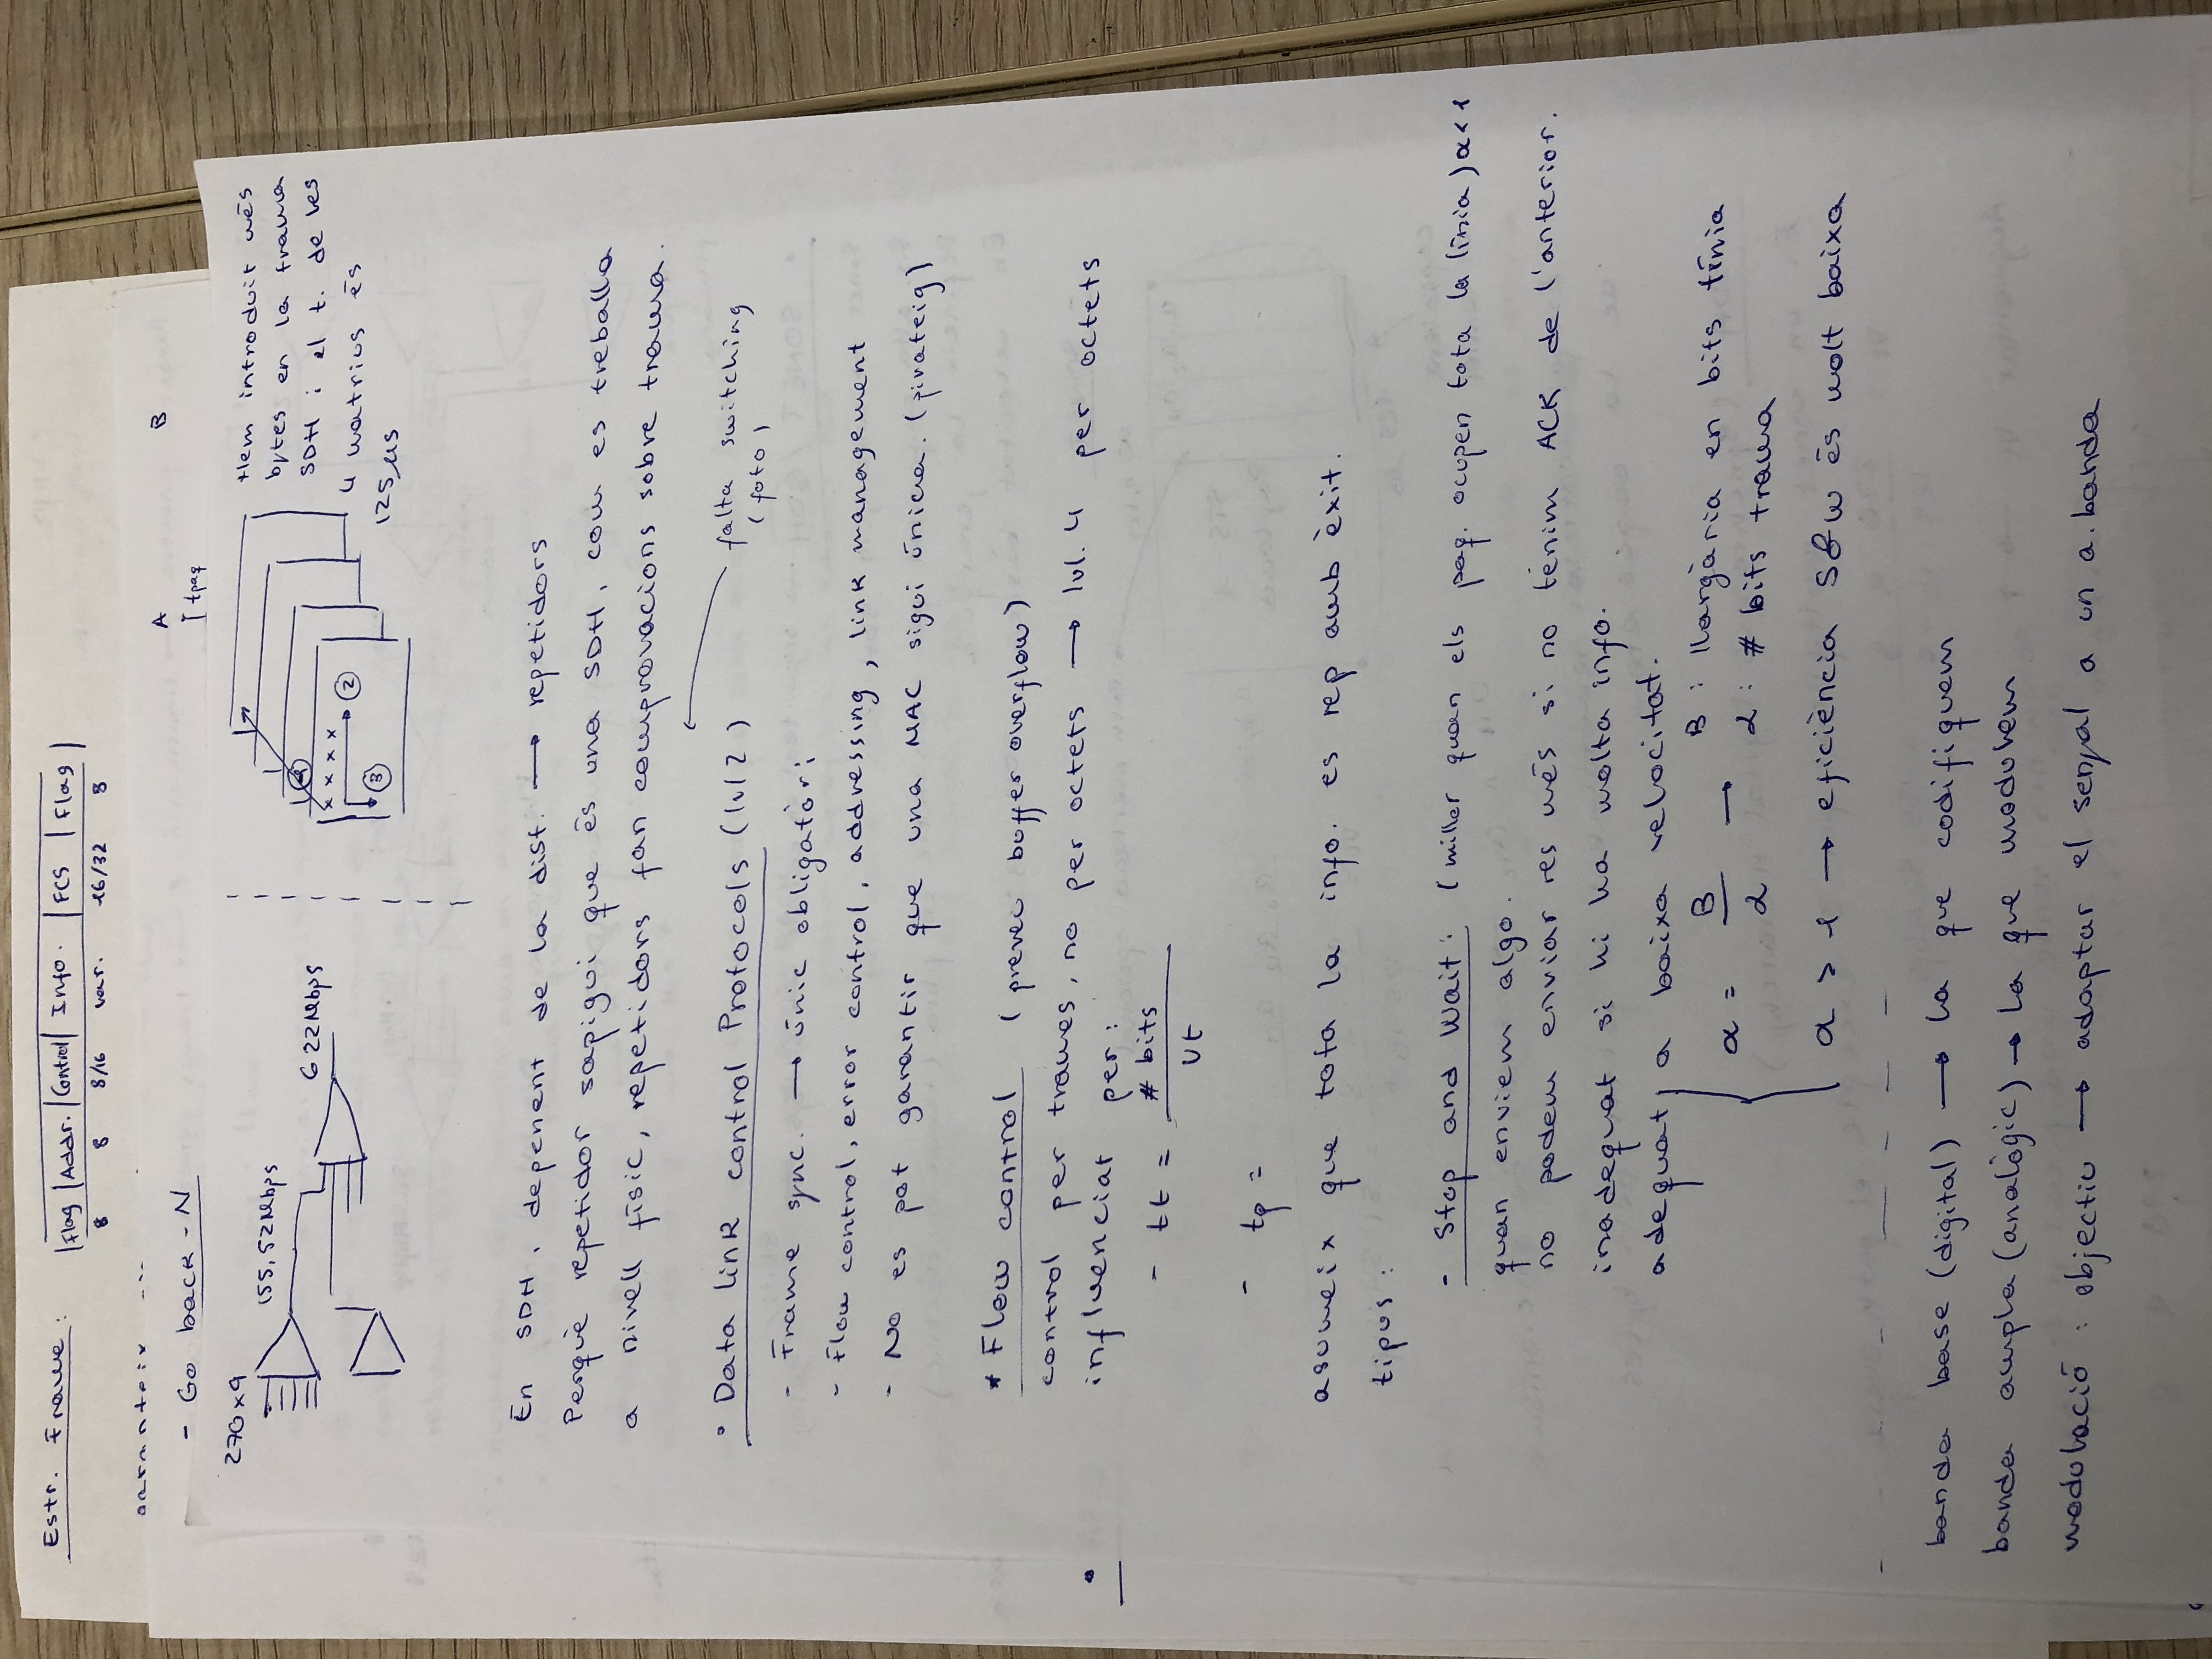 Estr. Frame :
|Flag |Addr. |Control| Info. | FCS | Flag |
8 8 8/16 var. 16/32 8
garanteix
A B
- Go back - N
tpaq
270x9
155,52Mbps
622Mbps
4
x x x x
2
3
Hem introduit més
bytes en la trama
SDH i el t. de les
4 matrius és
125 µs
En SDH, depenent de la dist. → repetidors
Perquè repetidor sapigui que és una SDH, com es treballa
a nivell físic, repetidors fan comprovacions sobre trama.
falta switching
(foto)
• Data link control Protocols (lvl 2)
- Frame sync. → únic obligatòri
- Flow control, error control, addressing, link management
- No es pot garantir que una MAC sigui única. (pirateig)
* Flow control (preveu buffer overflow)
control per trames, no per octets → lvl. 4 per octets
influenciat per :
- tt = # bits
vt
- tp =
asumeix que tota la info. es rep amb èxit.
tipus :
- Stop and Wait : (millor quan els paq. ocupen tota la línia) a < 1
quan enviem algo.
no podem enviar res més si no tenim ACK de l'anterior.
inadequat si hi ha molta info.
adequat a baixa velocitat.
a = B → B : llargària en bits línia
L L : # bits trama
a > 1 → eficiència S&W és molt baixa
banda base (digital) → la que codifiquem
banda ampla (analògic) → la que modulem
modulació : objectiu → adaptar el senyal a un a. banda